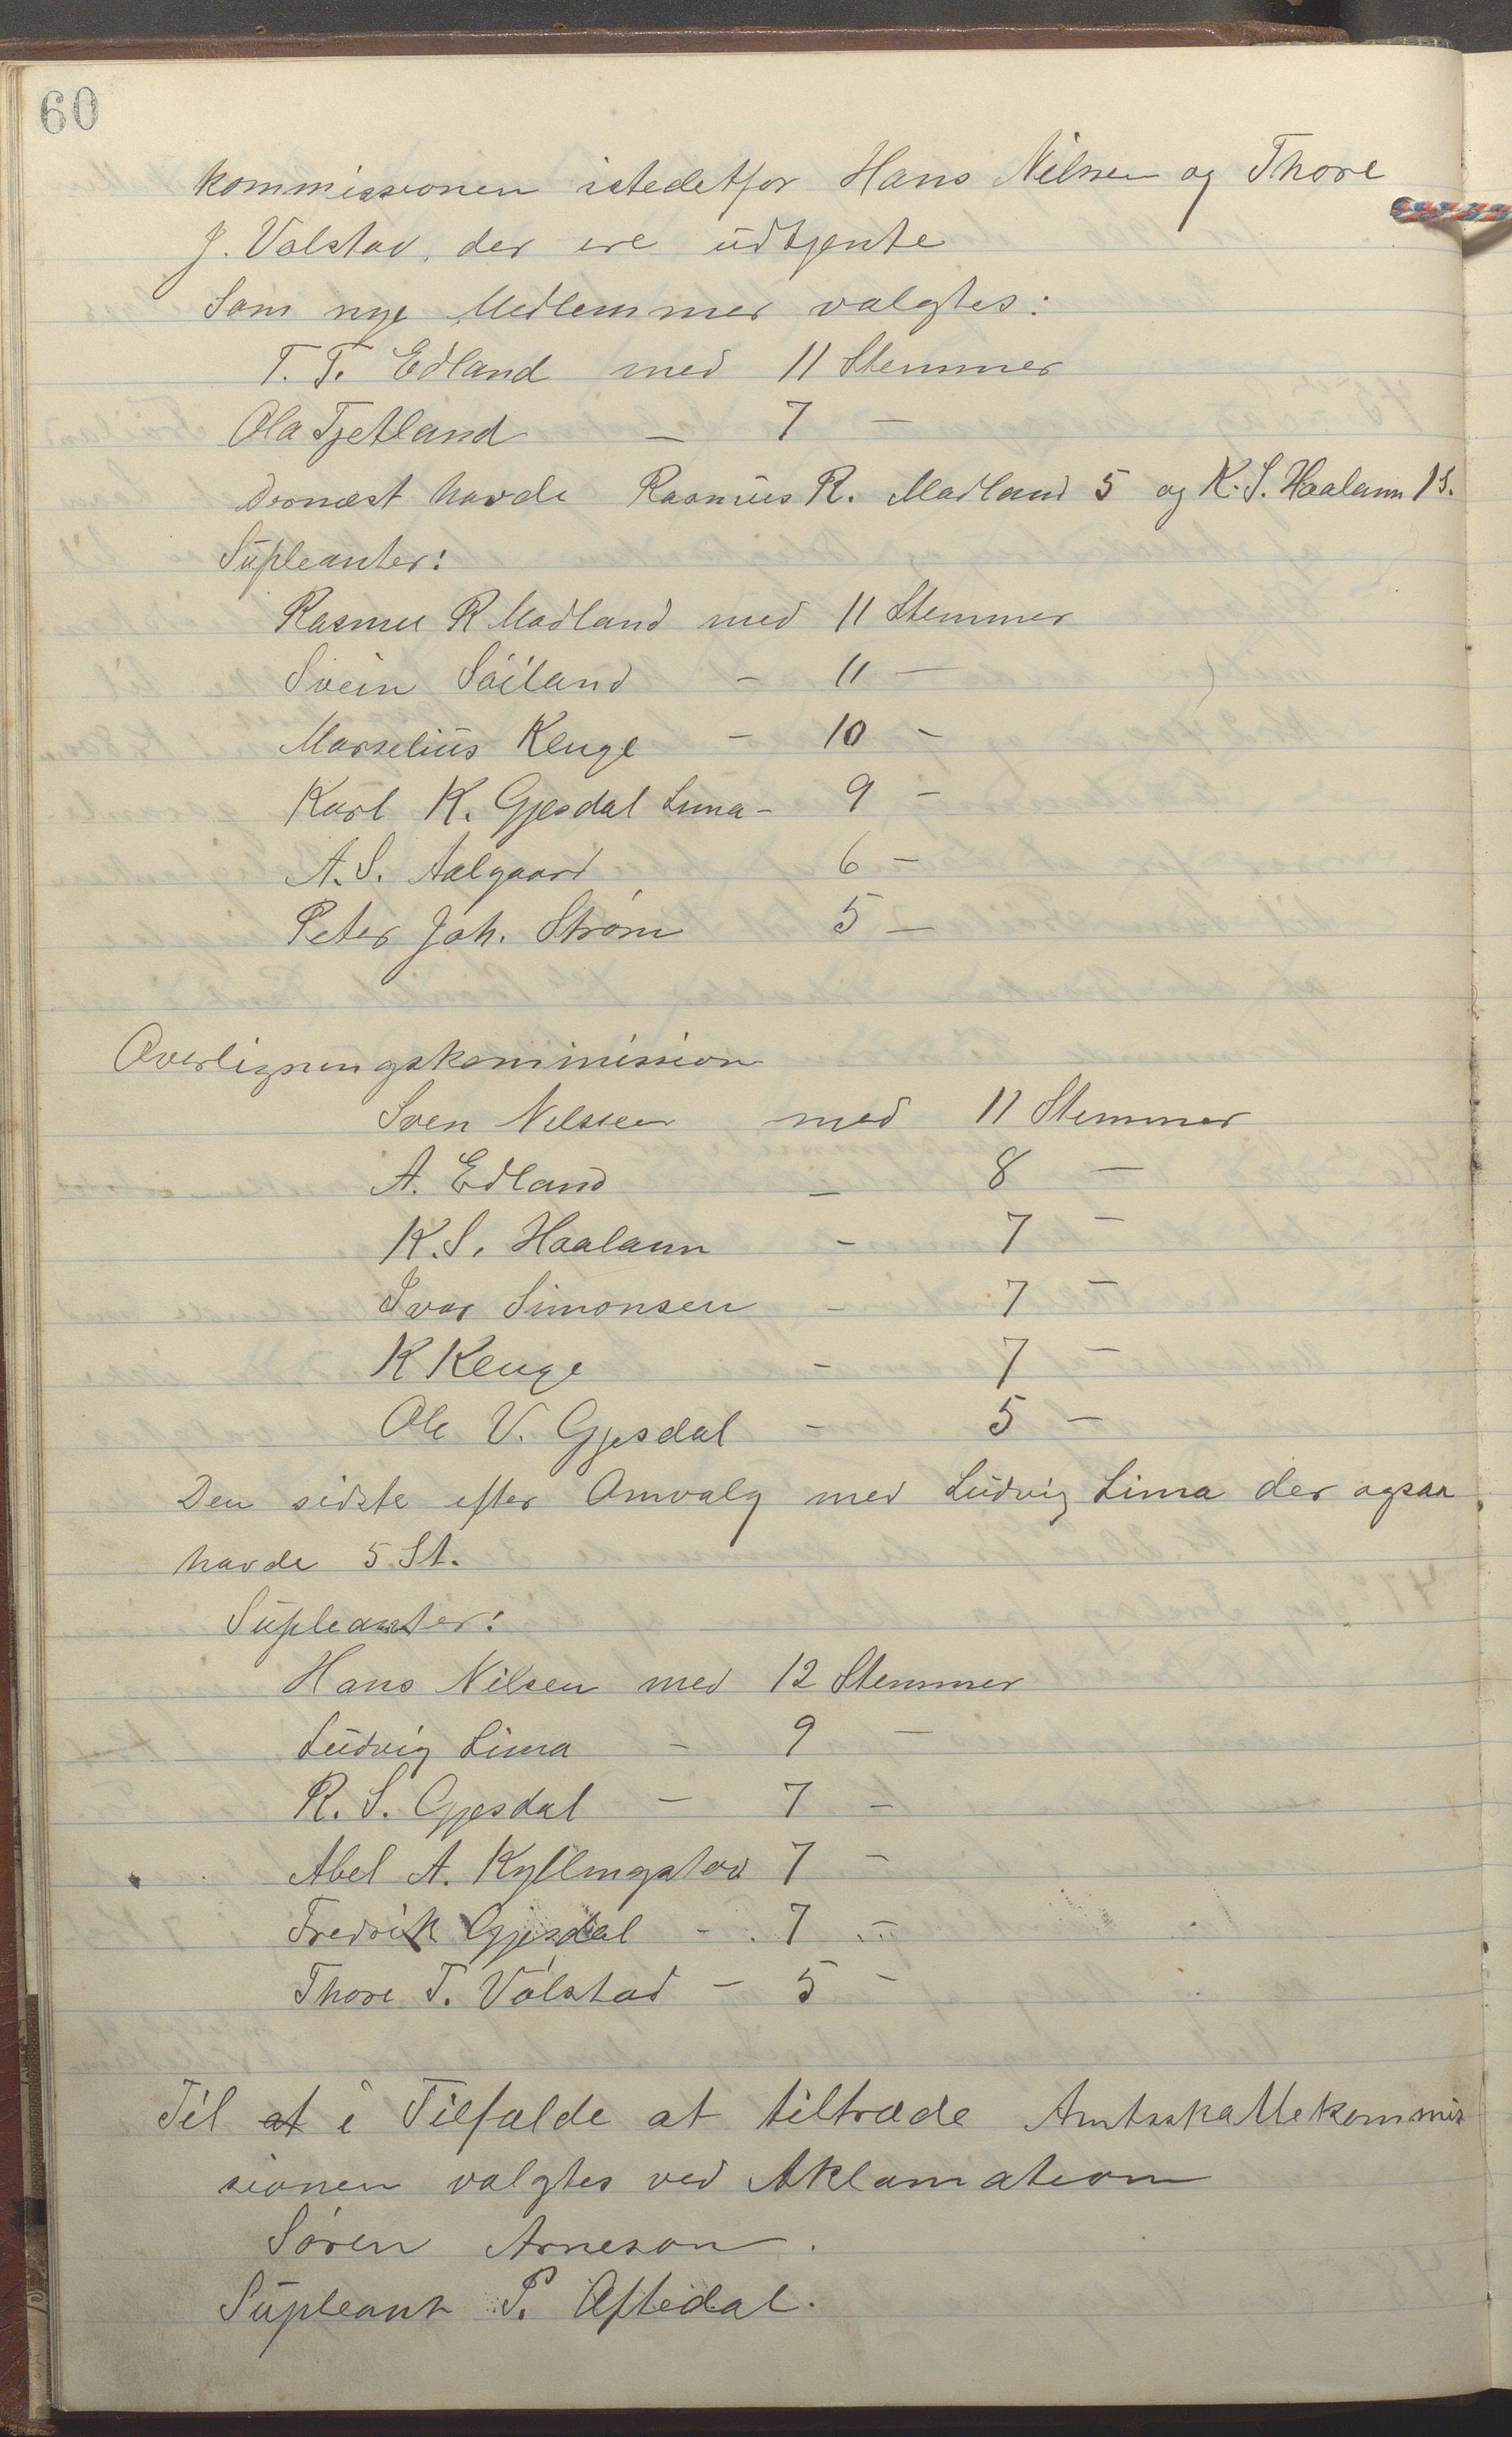 60
kommissionen istedetfor Hans Nilsen og Thore
J. Volstad, der ere udtjente
Som nye Medlemmer valgtes:
T. T. Edland med 11 Stemmer
Ola Tjetland — 7 —
Dernæst havde Rasmus R. Madland 5 og K. S. Haaland 1 S.
Supleanter:
Rasmus R Madland med 11 Stemmer
Svein Søiland - 11 —
Marselius Kluge - 10 -
Karl K. Gjesdal Lima - 9 -
A. S. Aalgaard 6 -
Peter Joh. Strøm 5 —
Overligningskommission
Sven Nilssen med 11 Stemmer
A. Edland - 8 —
K. S. Haaland - 7 -
Ivar Simonsen - 7 -
K Kluge - 7 -
Ole V. Gjesdal - 5 -
Den sidste efter Omvalg med Ludvig Lima der ogsaa
havde 5 St.
Supleanter:
Hans Nilsen med 12 Stemmer
Ludvig Lima - 9 —
R. S. Gjesdal - 7 -
Abel A. Kyllingstad 7 -
Fredrik Gjesdal - 7 -
Thore T. Vølstad - 5 -
Til at i Tilfælde at tiltræde Amtsskattekommis
sionen valgtes ved Aklamation
Søren Arneson.
Supleant P. Oftedal.